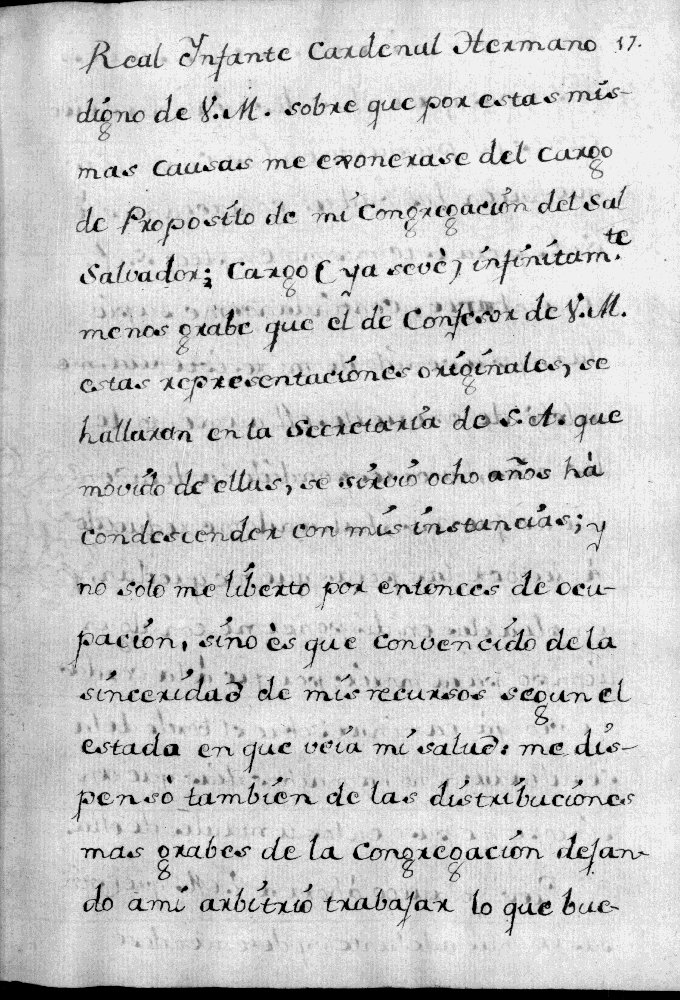 Real Infante Cardenal Hermano 17.
digno de V.M. sobre que por estas mis-
mas causas me exonerase del cargo
de Proposíto de mí Congregación del Sal
Salvador; Cargo (ya se vè) infinítam.te
menos grabe que el de Confesor de V.M.
estas representaciónes origínales, se
hallaran en la Secretaría de S.A. que
movído de ellas, se sirvió ocho años hà
condescender con mís instancias; y
no solo me líberto por entonces de ocu-
pación, síno ès que convencído de la
sínceridad de mis recursos segun el
estada en que veía mí salud: me dís-
pensò también de las distríbuciónes
mas grabes de la Congregación dejan-
do amí arbítrió trabajar lo que bue-